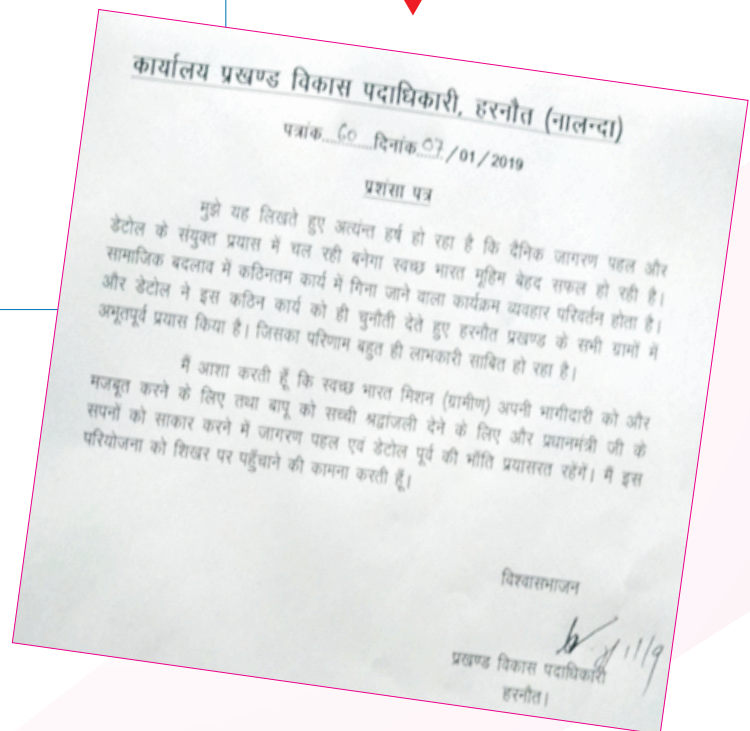 कार्यालय प्रखण्ड विकास पदाधिकारी, हरनौत (नालन्दा)
पत्रांक 60 दिनांक 07/01/2019
प्रशंसा पत्र
मुझे यह लिखते हुए अत्यन्त हर्ष हो रहा है कि दैनिक जागरण पहल और
डेटोल के संयुक्त प्रयास में चल रही बनेगा स्वच्छ भारत मूहिम बेहद सफल हो रही है।
सामाजिक बदलाव में कठिनतम कार्य में गिना जाने वाला कार्यक्रम व्यवहार परिवर्तन होता है।
और डेटोल ने इस कठिन कार्य को ही चुनौती देते हुए हरनौत प्रखण्ड के सभी ग्रामों में
अभूतपूर्व प्रयास किया है। जिसका परिणाम बहुत ही लाभकारी साबित हो रहा है।
मैं आशा करती हूँ कि स्वच्छ भारत मिशन (ग्रामीण) अपनी भागीदारी को और
मजबूत करने के लिए तथा बापू को सच्ची श्रद्वांजली देने के लिए और प्रधानमंत्री जी के
सपनों को साकार करने में जागरण पहल एवं डेटोल पूर्व की भाँति प्रयासरत रहेगें। मैं इस
परियोजना को शिखर पर पहुँचाने की कामना करती हूँ।
विश्वासभाजन
प्रखण्ड विकास पदाधिकारी
हरनौत।